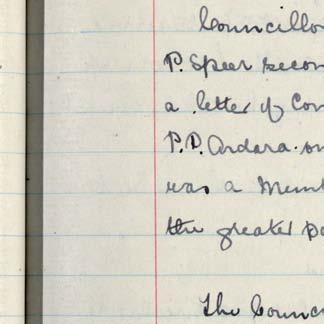 Councillo
P. Speer secon
a letter of Con
P.P. Ardara on
was a Memb
the greater pa
The Counc